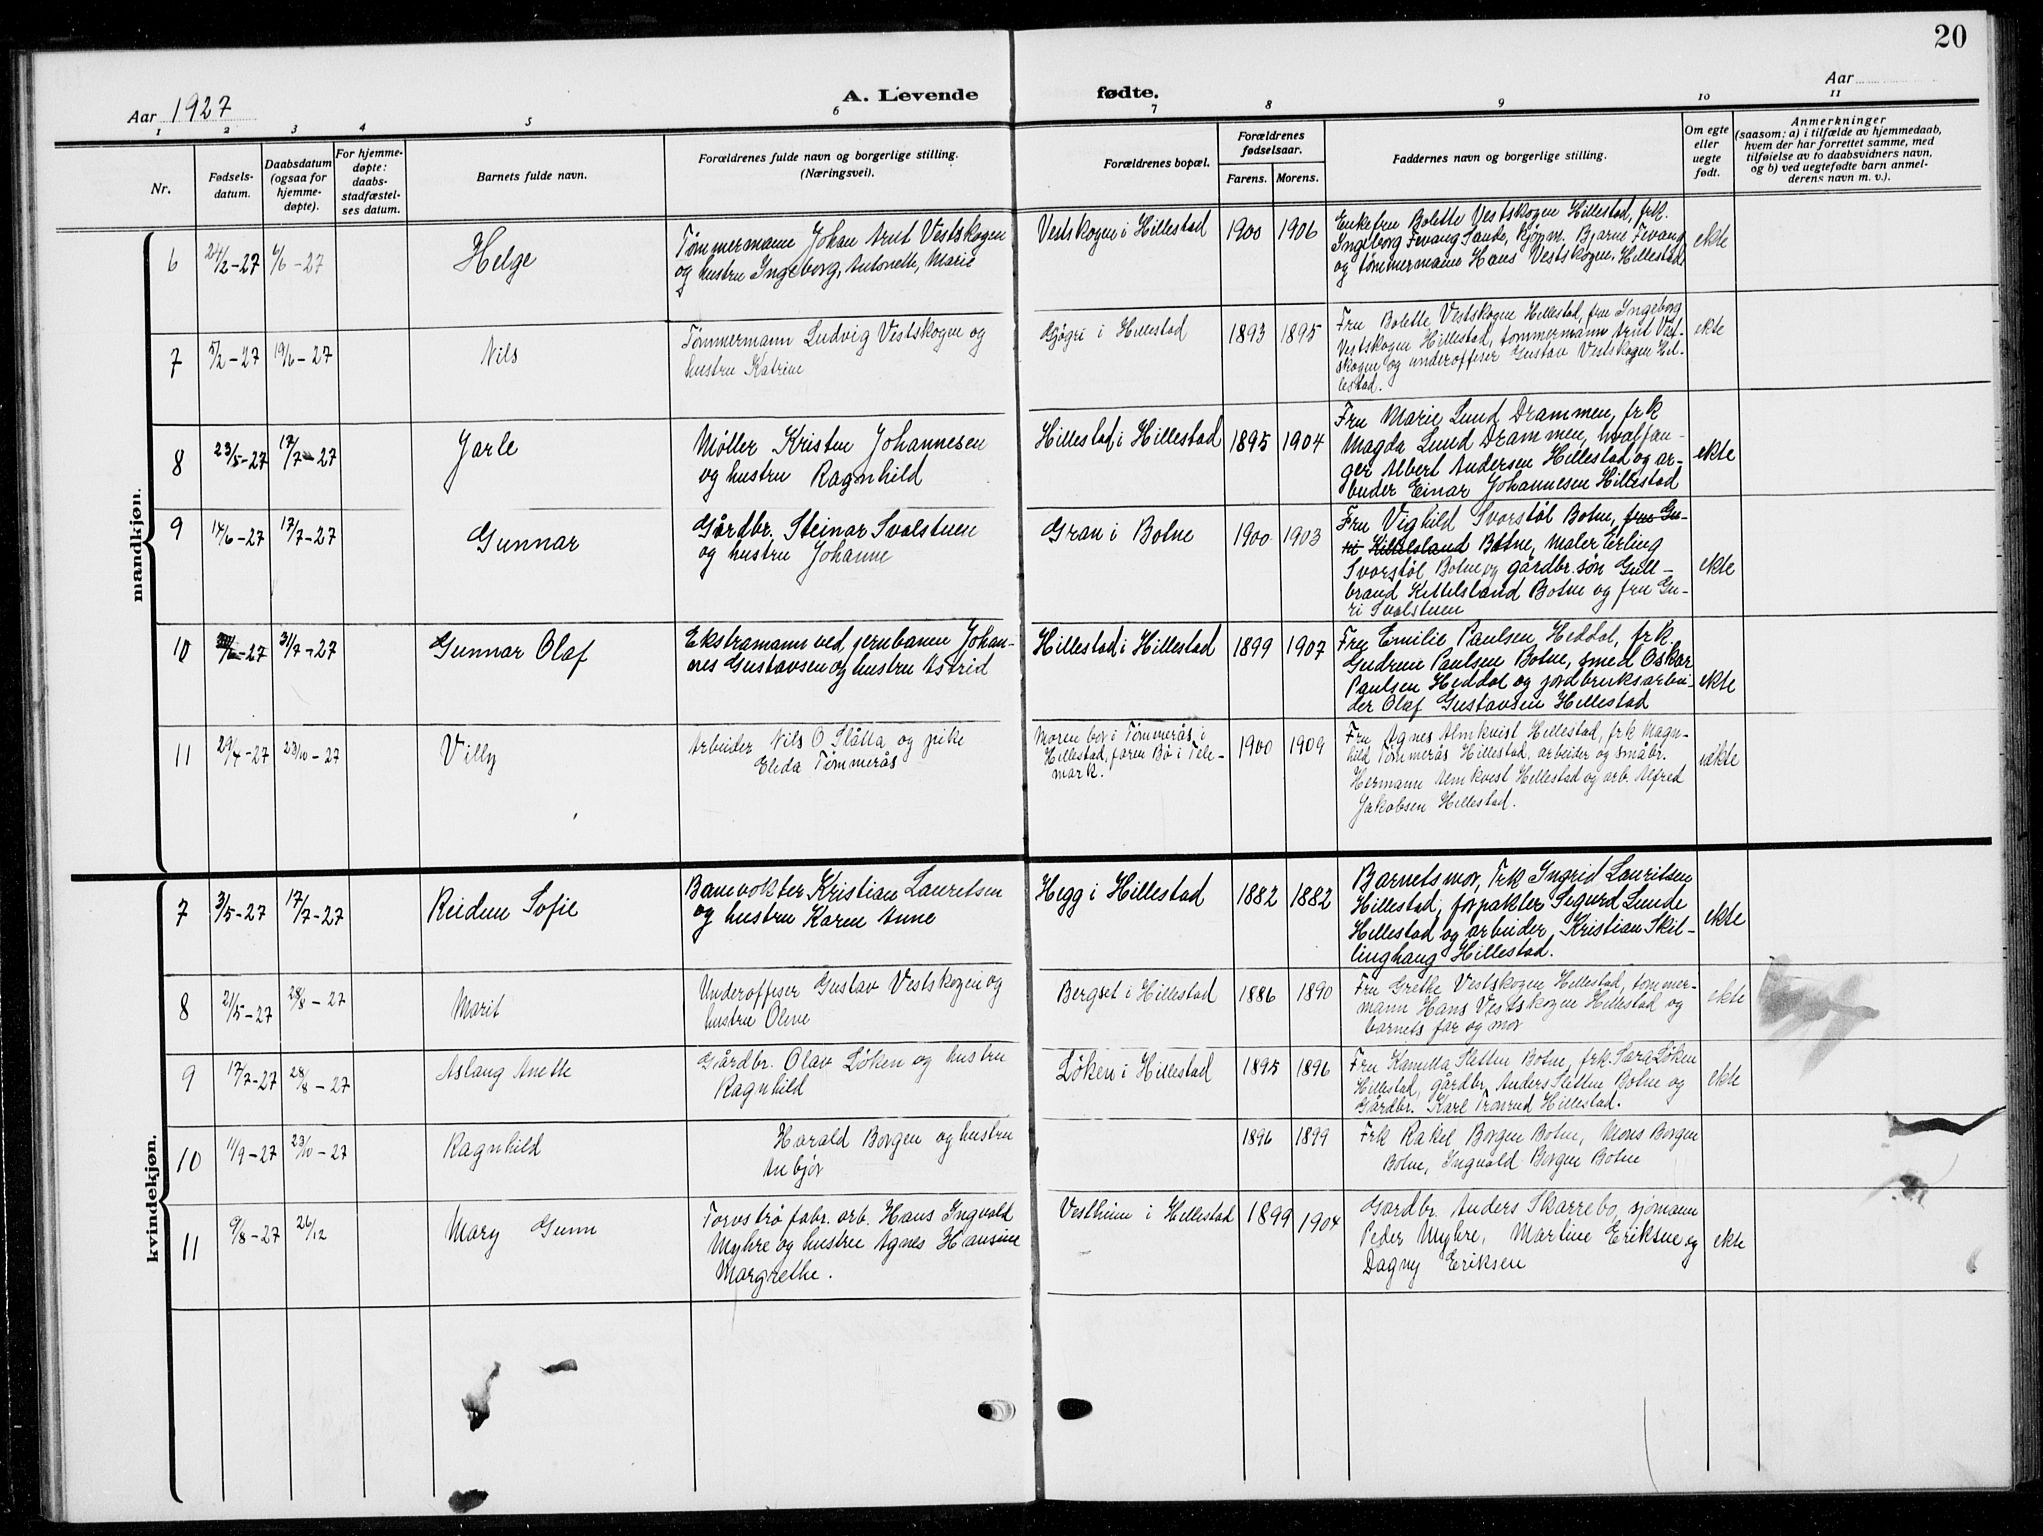 20
Aar 1927
A. Levende fødte.
Aar
1 2 3 4 5 6 7 8 9 10 11
Nr.
Fødsels-
datum.
Daabsdatum
(ogsaa for
hjemme-
døpte).
For hjemme-
døpte:
daabs-
stadfæstel-
ses datum.
Barnets fulde navn.
Forældrenes fulde navn og borgerlige stilling.
(Næringsvei).
Forældrenes bopæl.
Forældrenes
fødselsaar.
Farens. Morens.
Faddernes navn og borgerlige stilling.
Om egte
eller
uegte
født.
Anmerkninger
(saasom: a) i tilfælde av hjemmedaab,
hvem der har forrettet samme, med
tilføielse av to daabsvidners navn,
og b) ved uegtefødte barn anmel-
derens navn m. v.).
mandkjøn.
6
24/2-27
6/6-27
Helge
Tømmermann Johan Arnt Vestskogen
og hustru Ingeborg, Antonette, Marie
Vestskogen i Hillestad
1900
1906
Enkefru Bolette Vestskogen Hillestad, frk.
Ingeborg Fevang Sande, kjøpm. Bjarne Fevang
og tømmermann Hans Vestskogen, Hillestad
ekte
7
5/2-27
19/6-27
Nils
Tømmermann Ludvig Vestskogen og
hustru Katrine
i Hillestad
1893
1895
Fru Bolette Vestskogen Hillestad, fru Ingeborg
Vestskogen Hillestad, tømmermann Arnt Vest-
skogen og underoffiser Gustav Vestskogen Hil-
lestad.
ekte
8
23/5-27
17/7-27
Jarle
Møller Kristen Johannesen
og hustru Ragnhild
Hillestad i Hillestad
1895
1904
Fru Marie Lund Drammen, frk
Magda Lund Drammen, hvalfan-
ger Albert Andersen Hillestad og ar-
beider Einar Johannesen Hillestad
ekte
9
14/6-27
17/7-27
Gunnar
Gårdbr. Steinar Svalstuen
og hustru Johanne
Gran i Botne
1900
1903
Fru Vighild Svorstøl Botne, fru Gu-
ri Kittilsland Botne, maler Erling
Svorstøl Botne og gårdbr. søn Gull-
brand Kittilsland Botne og fru Gu-
ri Svalstuen
ekte
10
31/7-27
Gunnar Olaf
Ekstramann ved jernbanen Johan-
nes Gustavsen og hustru Astrid
Hillestad i Hillestad
1899
1907
Fru Emilie Paulsen, Heddal, frk.
Gudrun Paulsen Botne, smed Oskar
Paulsen Heddal og jordbruksarbei-
der Olaf Gustavsen Hillestad
ekte
11
29/4-27
23/10-27
Villy
Arbeider Nils O. Slåtta og pike
Elida Tømmerås
Moren bor i Tømmerås i
Hillestad, faren Bø i Tele-
mark.
1900
1909
Fru Agnes Almkvist Hillestad, frk Magn-
hild Tømmerås Hillestad, arbeider og småbr.
Hermann Almkvist Hillestad og arb. Alfred
Jakobsen Hillestad.
uekte
kvindekjøn.
7
3/5-27
17/7-27
Reidun Sofie
Banevokter Kristian Lauritsen
og hustru Karen Anne
Hegg i Hillestad
1882
1882
Barnets mor, Frk Ingrid Lauritsen
Hillestad, forpakter Sigurd Lunde
Hillestad og arbeider Kristian Skil-
linghaug Hillestad.
ekte
8
21/5-27
28/8-27
Marit
Underoffiser Gustav Vestskogen og
hustru Olive
Bergset i Hillestad
1886
1890
Fru Grethe Vestskogen Hillestad, tømmer-
mann Hans Vestskogen Hillestad og
barnets far og mor
ekte
9
17/7-27
28/8-27
Aslaug Anette
Gårdbr. Olav Løken og hustru
Ragnhild
Løken i Hillestad
1895
1896
Fru Kamilla Sletten Botne, frk. Sara Løken
Hillestad, gårdbr. Anders Sletten Botne og
Gårdbr. Karl Tronrud Hillestad.
ekte
10
11/9-27
23/10-27
Ragnhild
Harald Borgen og hustru
Anbjør
1896
1899
Frk Rakel Borgen Botne, Mons Borgen
Botne, Ingvald Borgen Botne
11
9/8-27
26/12
Mary Gunn
Torvstrø fabr. arb. Hans Ingvald
Myhre og hustru Agnes Hansine
Margrethe.
Vestheim i Hillestad
1899
1904
Gardbr. Anders Skarrebo, sjømann
Peder Myhre, Martine Eriksen og
Dagny Eriksen
ekte